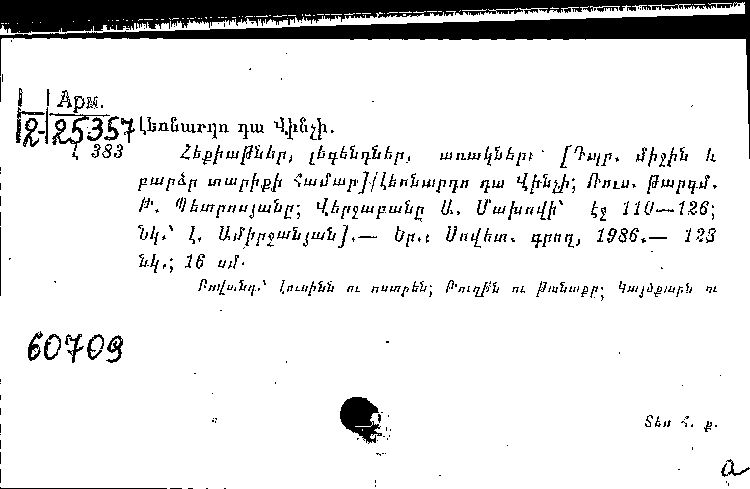 Арм.
2-25357
Լեոնարդո դա Վինչի.
Լ 383
Հեքիաթներ, լեգենդներ, առակներ: [Դպր. միջին և
բարձր տարիքի համար]/Լեոնարդո դա Վինչի; Ռուս. թարգմ.
Թ. Պետրոսյանը; Վերջաբանը Ա. Մախովի՝ էջ 110—126;
Նկ.՝ Լ. Ամիրջանյան].— Եր.: Սովետ. գրող, 1986.— 128
նկ.; 16 սմ.
Բովանդ.՝ Լուսինն ու ոստրեն; Թուղթն ու թանաքը; Կայծքարն ու
60709
Տես հ. ք.
a